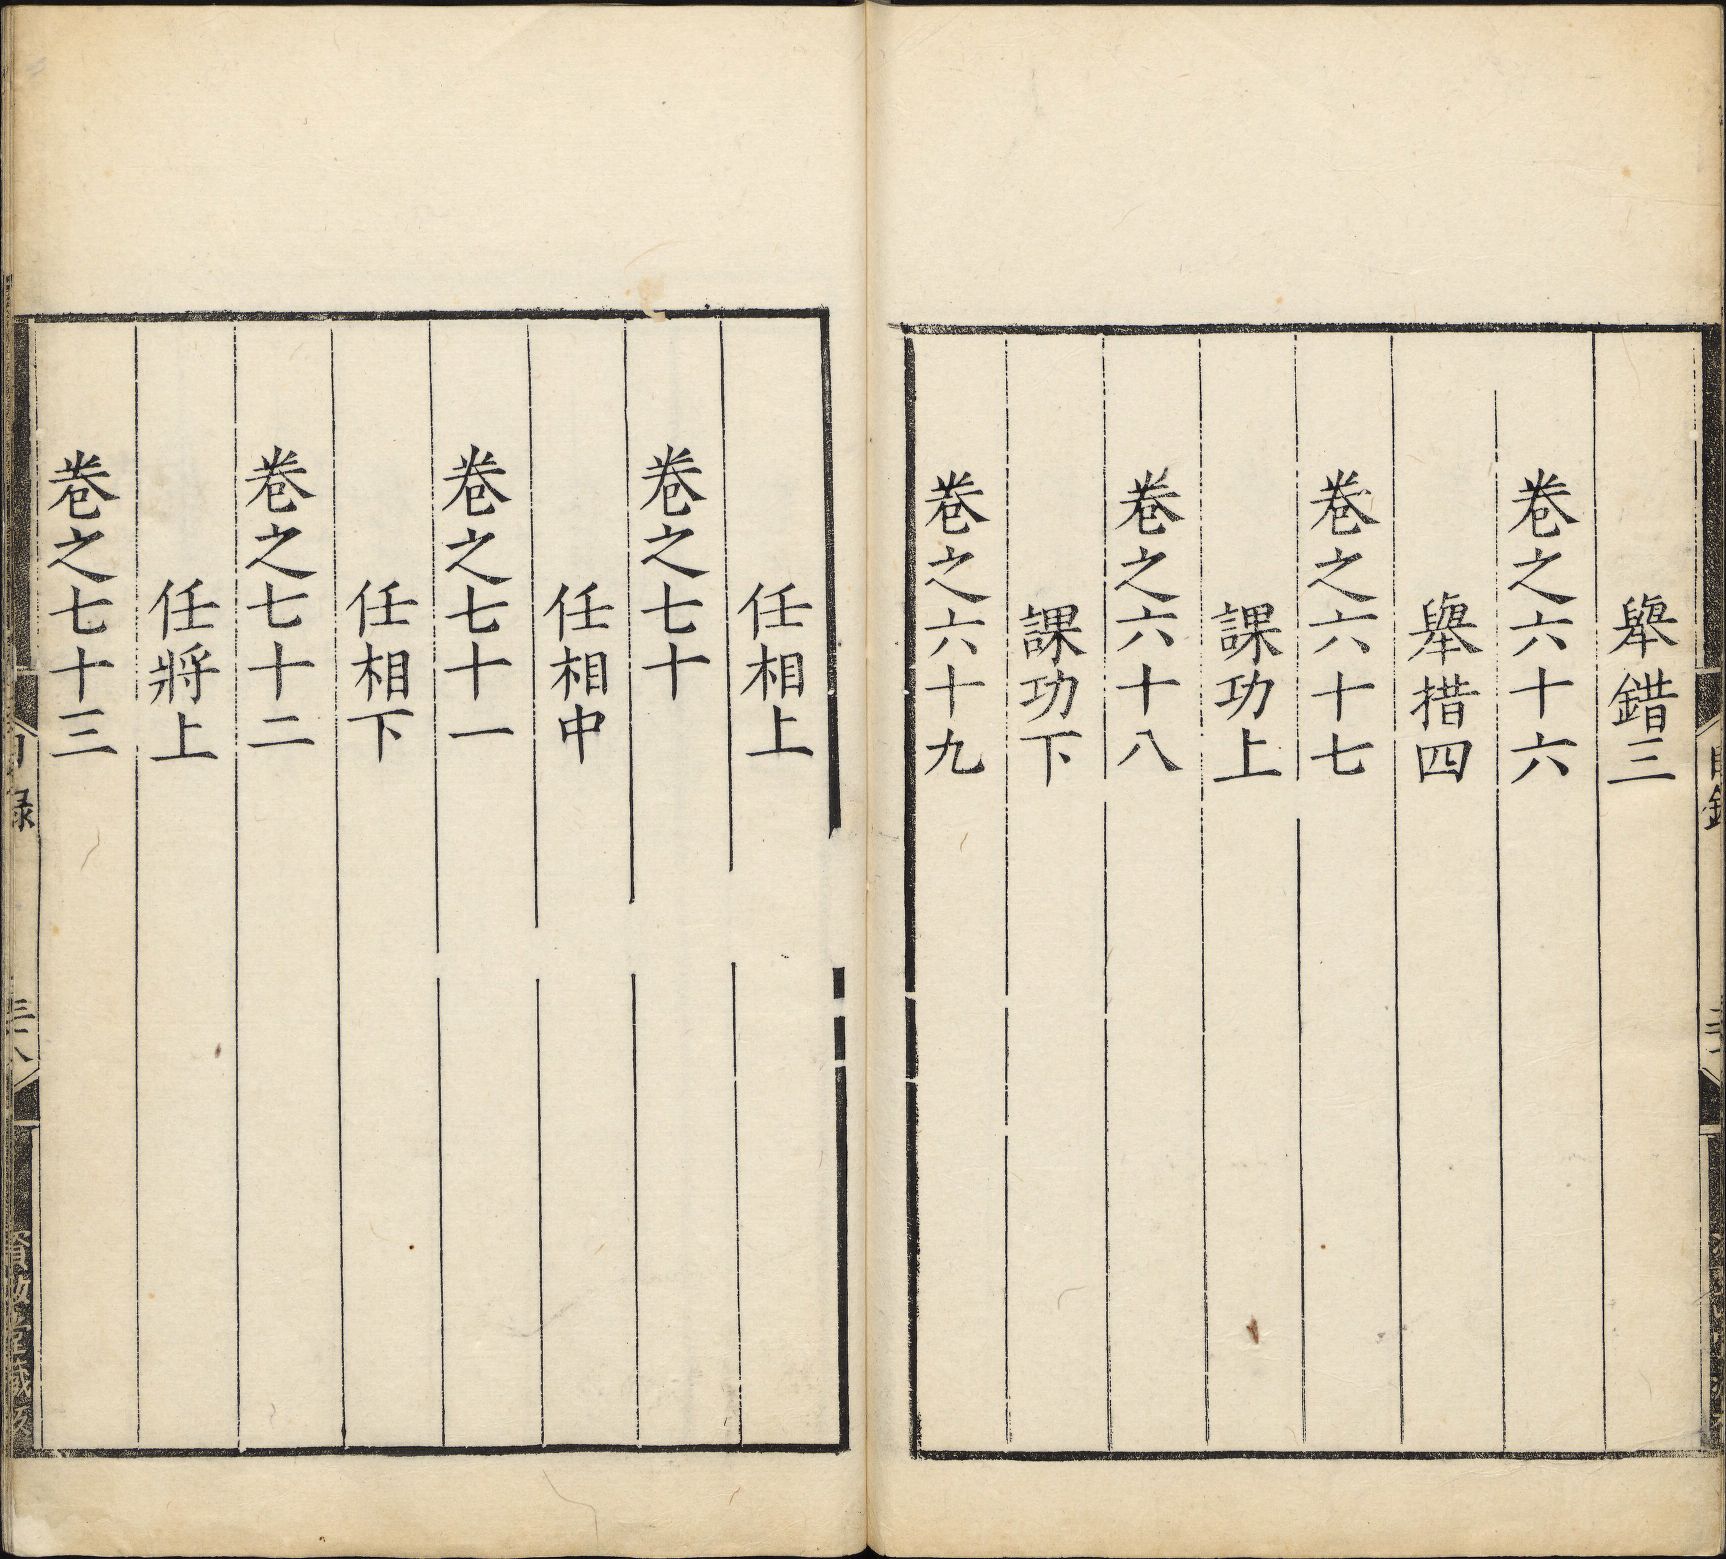 舉錯三
卷之六十六
舉措四
卷之六十七
課功上
卷之六十八
課功下
卷之六十九
任相上
卷之七十
任相中
卷之七十一
任相下
卷之七十二
任將上
卷之七十三
目錄